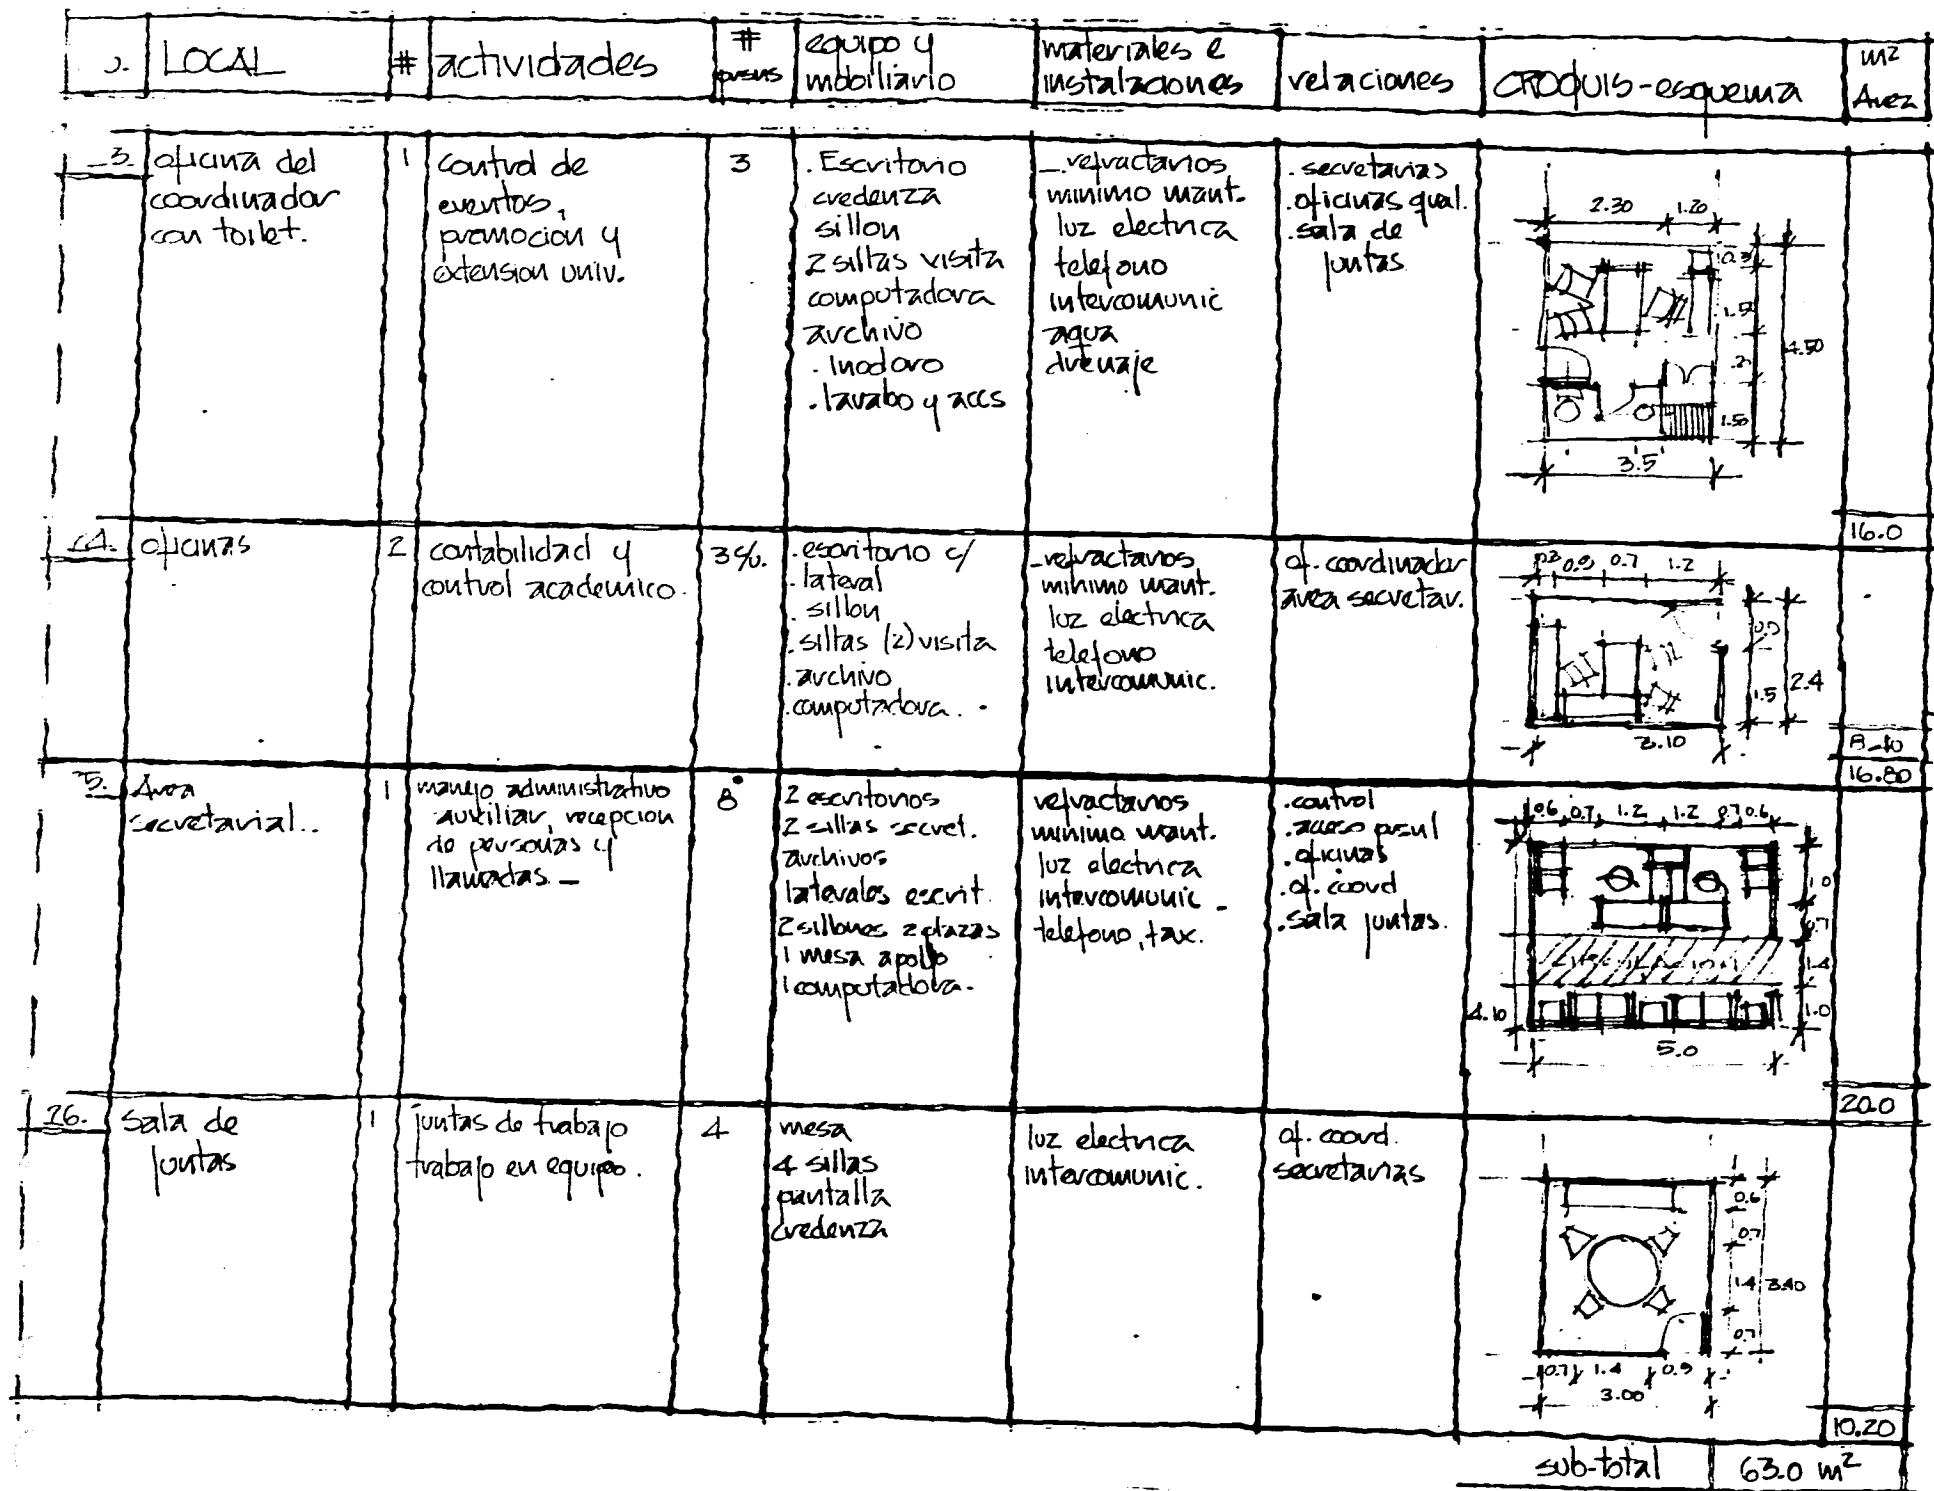 LOCAL # actividades # psns equipo y mobiliario materiales e instalaciones relaciones CROQUIS-esquema m2 Area
3. oficina del coordinador con toilet.
1
control de
eventos,
promocion y
extension univ.
3
. Escritorio
credenza
sillon
2 sillas visita
computadora
archivo
. Inodoro
. lavabo y accs
- refractarios
minimo mant.
luz electrica
telefono
intercomunic
agua
drenaje
. secretarias
. oficinas gral.
. sala de
juntas
2.30 1.20
1.50
4.50
1.50
3.5
16.0
oficinas
2
contabilidad y
control academico.
3 c/u.
. escritorio c/
. lateral
. sillon
. sillas (2) visita
. archivo
. computadora.
- refractarios
minimo mant.
luz electrica
telefono
intercomunic.
of. coordinador
area secretav.
0.3 0.9 0.7 1.2
0.9
1.5 2.4
3.10
8.40
16.80
5. Area
secretarial..
1
manejo administrativo
auxiliar, recepcion
de personas y
llamadas. -
8
2 escritorios
2 sillas secret.
archivos
laterales escrit.
2 sillones 2 plazas
1 mesa apollo
1 computadora.
refractarios
minimo mant.
luz electrica
intercomunic -
telefono, fax.
. control
. acceso psnl
. oficinas
. of. coord
. sala juntas.
0.6 0.7 1.2 1.2 0.7 0.6
1.0
0.7
1.4
4.10 1.0
5.0
20.0
26. Sala de
juntas
1
juntas de trabajo
trabajo en equipo.
4
mesa
4 sillas
pantalla
credenza
luz electrica
intercomunic.
of. coord.
secretarias
0.6
0.7
1.4 3.40
0.7
0.7 1.4 0.9
3.00
10.20
sub-total 63.0 m2